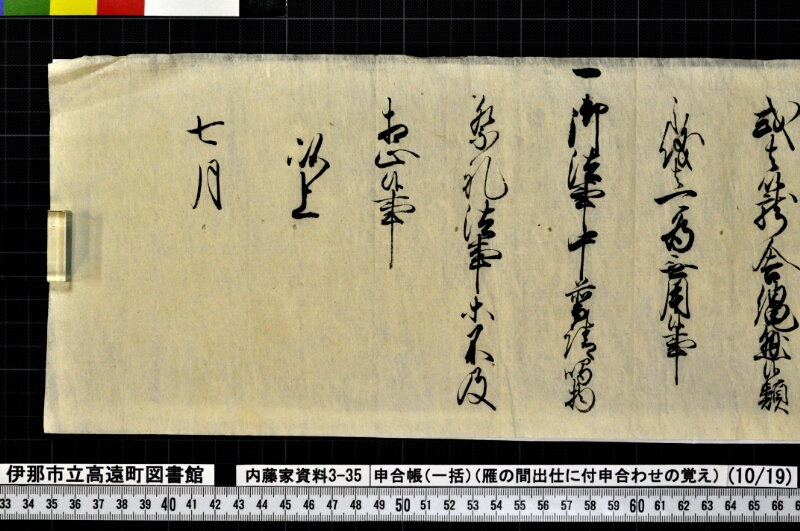 一御法事中普請鳴物
祭礼法事等不及
相止候事
以上
七月
伊那市立高遠町図書館
内藤家資料3-35
申合帳(一括)(雁の間出仕に付申合わせの覚え)
(10/19)
33 34 35 36 37 38 39 40 41 42 43 44 45 46 47 48 49 50 51 52 53 54 55 56 57 58 59 60 61 62 63 64 65 66